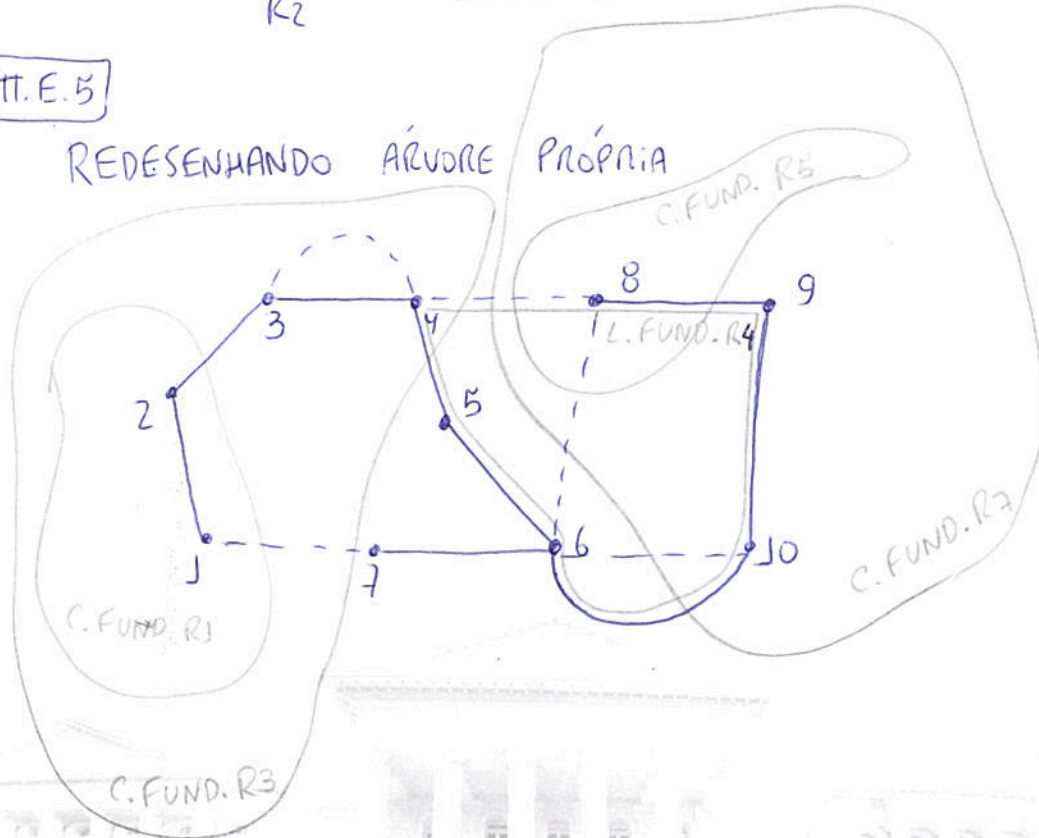 R2
π.E.5
REDESENHANDO ÁRVORE PRÓPRIA
C.FUND. R5
8 9
3 4 L.FUND.R4
2 5
1 7 6 10
C.FUND. R7
C.FUND. R1
C.FUND. R3